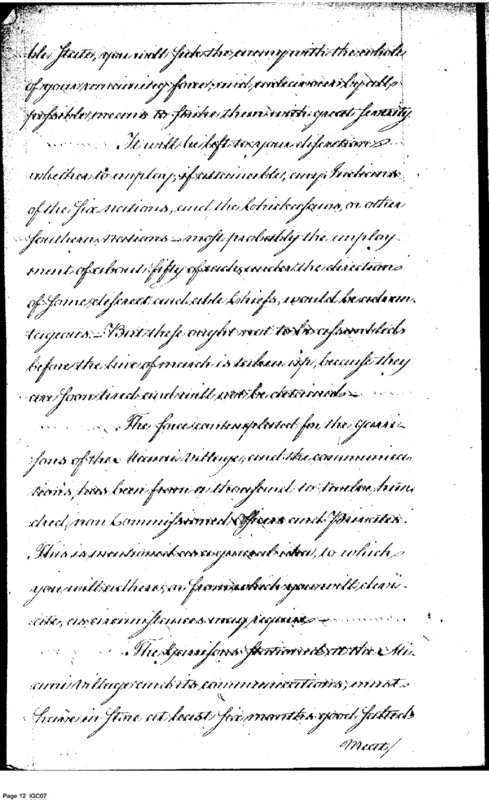 ble State, you will seek the enemy with the whole
of your remaining force, and endeavour by all
possible means to strike them with great severity
It will be left to your discretion
whether to employ, if attainable, any Indians
of the Six nations, and the Chickesaws, or other
Southern Nations — most probably the employ-
ment of about fifty of each, under the direction
of some discreet and able Chiefs, would be advan
tageous. — But these ought not to be assembled
before the line of march is taken up, because they
are soon tired and will not be detained —
The force contemplated for the Garri-
sons of the Miami Village, and the communica
tions, has been from a thousand to twelve hun
dred, non Commissioned Officers and Privates.
This is mentioned as a general idea, to which
you will adhere, or from which you will devi-
ate, as circumstances may require —
The Garrisons stationed at the Mi-
ami Village and its communications, must
have in store at least six months good salted
Meat/
Page 12 IGC07